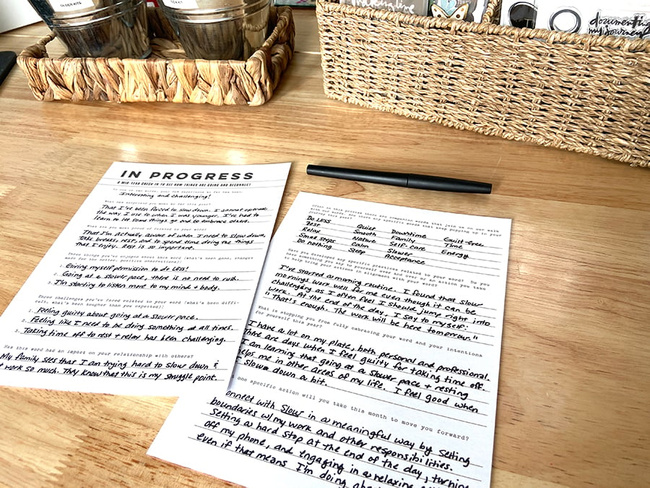 documenting
my journey
IN PROGRESS
A MID-YEAR CHECK IN TO SEE HOW THINGS ARE GOING AND RECONNECT
Interesting and challenging!
That I've been forced to slow down. I cannot operate
the way I use to when I was younger. I've had to
learn to let some things go and to embrace others.
That I'm actually aware of when I need to slow down,
take breaks, rest, and to spend time doing the things
that I enjoy. Rest is so important.
Giving myself permission to do LESS!
Going at a slower pace, there is no need to rush.
I'm starting to listen more to my mind + body.
Feeling guilty about going at a slower pace.
Feeling like I need to be doing something at all times.
Taking time off to rest + relax has been challenging.
Has this word had an impact on your relationship with others?
My family sees that I am trying hard to slow down &
work so much. They know that this is my struggle point.
Do LESS
Rest
Relax
Small steps
Do nothing
Quiet
Smooth
Nature
Calm
Stop
Downtime
Family
Self-care
Slower
Acceptance
Guilt-free
Time
Energy
I've started a morning routine. I found that slow
mornings work well for me even though it can be
challenging as I often feel I should jump right into
work. At the end of the day, I say to myself:
"That's enough. The work will be here tomorrow."
I have a lot on my plate, both personal and professional.
There are days when I feel guilty for taking time off.
I am learning that going at a slow pace + resting
helps me in other areas of my life. I feel good when
I slow down a bit.
one specific action will you take this month to move you forward?
connect with Slow in a meaningful way by setting
boundaries w/my work and other responsibilities.
Setting a hard stop at the end of the day, turning
off my phone, and engaging in a relaxing
even if that means I'm doing